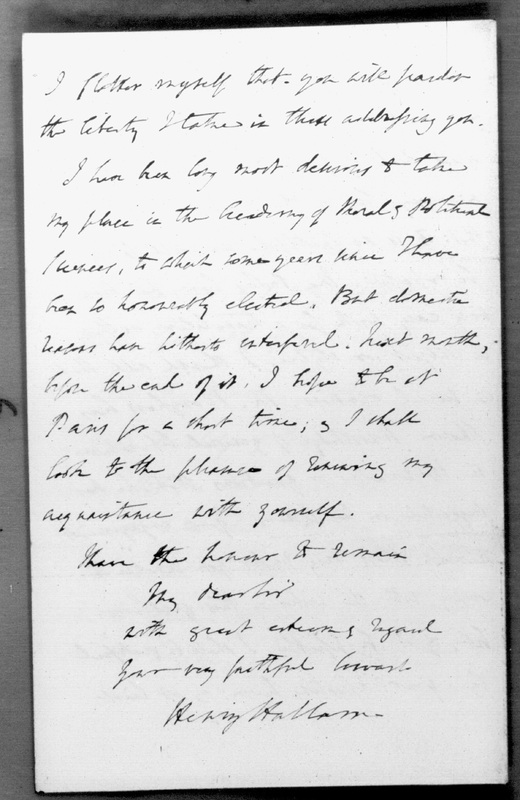 I flatter myself that you will pardon
the liberty I take in these addressing you.
I have been long most desirous to take
my place in the Academy of Moral & Political
Sciences, to which some years since I have
been so honourably elected. But domestic
reasons have hitherto interfered. Next month,
before the end of it, I hope to be at
Paris for a short time; & I shall
look to the pleasure of renewing my
acquaintance with yourself.
I have the honour to remain
My dear Sir
with great esteem & regard
Your very faithful Servant
Henry Hallam